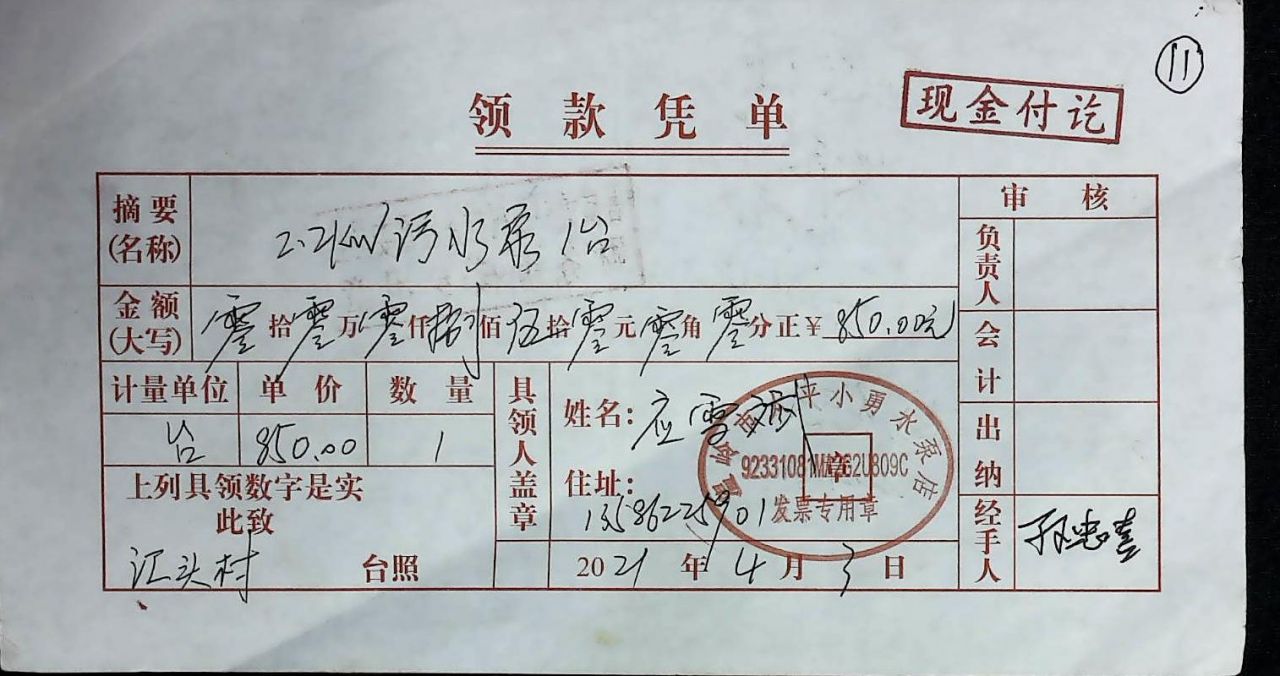 11
领款凭单
现金付讫
摘要(名称) 2.2KW污水泵1台
金额(大写) 零拾零万零仟捌佰伍拾零元零角零分正¥850.00元
计量单位 单价 数量
台 850.00 1
上列具领数字是实
此致
江头村 台照
具领人盖章
姓名: 应雪
住址:
13586225901
2021年4月3日
小勇水泵店
发票专用章
章
审核
负责人
会计
出纳
经手人